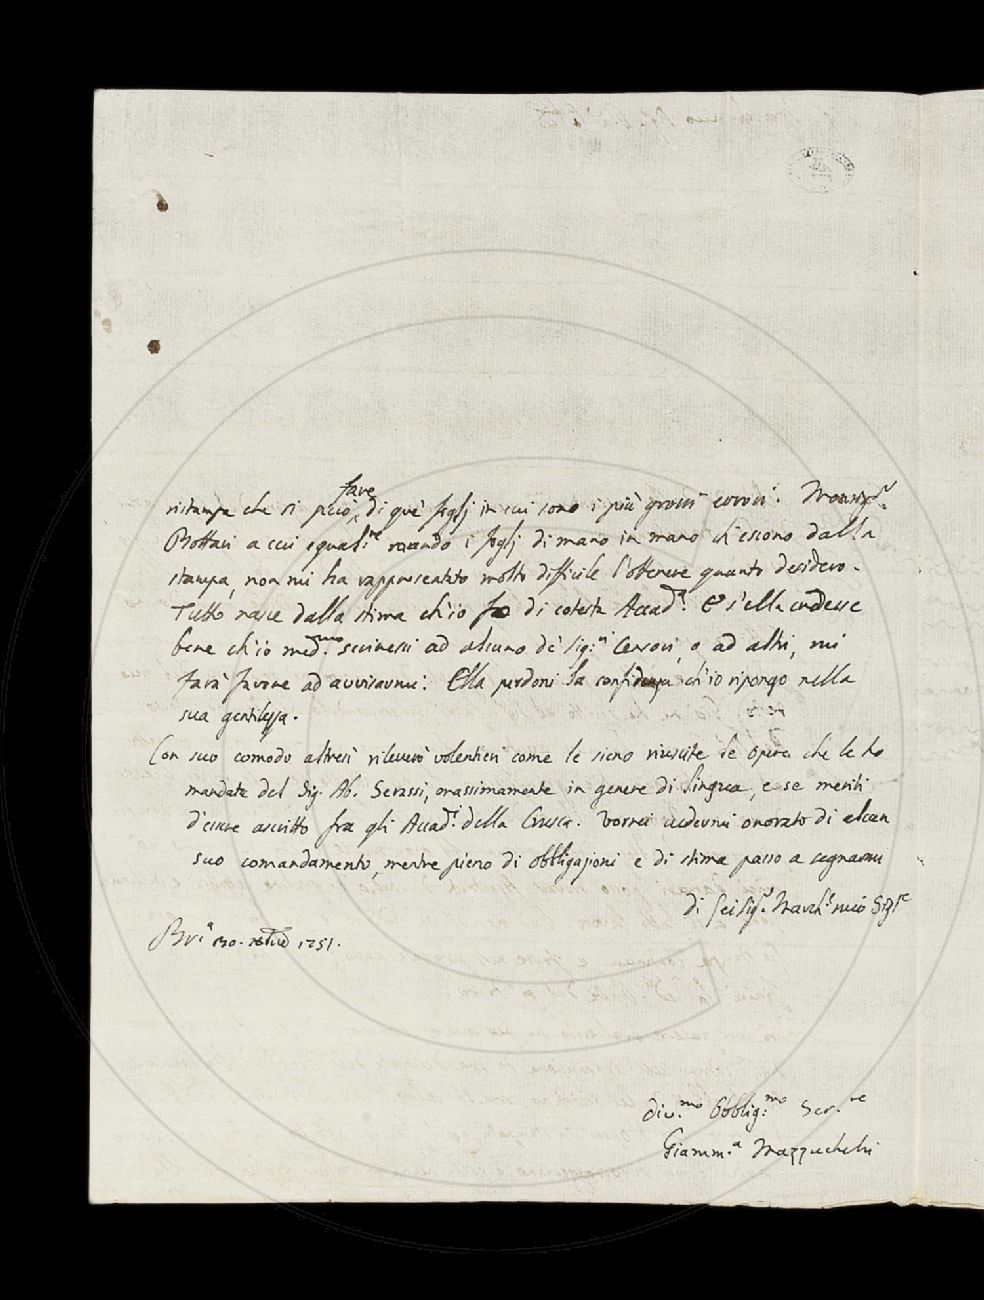 ristampa che si può fare di què foglj in cui sono i più grossi errori. Monsig.r
Bottari a cui egual.te mando i foglj di mano in mano ch'escono dalla
stampa, non mi ha rappresentato molto difficile l'ottenere quanto desidero.
Tutto nasce dalla stima ch'io fo di cotesta Accad.a E s'ella credesse
bene ch'io med.mo scrivessi ad alcuno dè Sig.ri Censori, o ad altri, mi
farà favore ad avvisarmi. Ella perdoni la confidenza ch'io ripongo nella
sua gentilezza.
Con suo comodo altresì rileverò volentieri come le sieno riuscite le Opere che le ho
mandate del Sig. Ab. Serassi, massimamente in genere di lingua, e se meriti
d'essere ascritto fra gli Accad.i della Crusca. Vorrei vedermi onorato di alcun
suo comandamento, mentre pieno di obbligazioni e di stima passo a segnarmi
di Lei Sig.r March.e mio Sig.re
Bres.a 1751.
Div.mo Obblig.mo Ser.re
Giamm.a Mazzuchelli